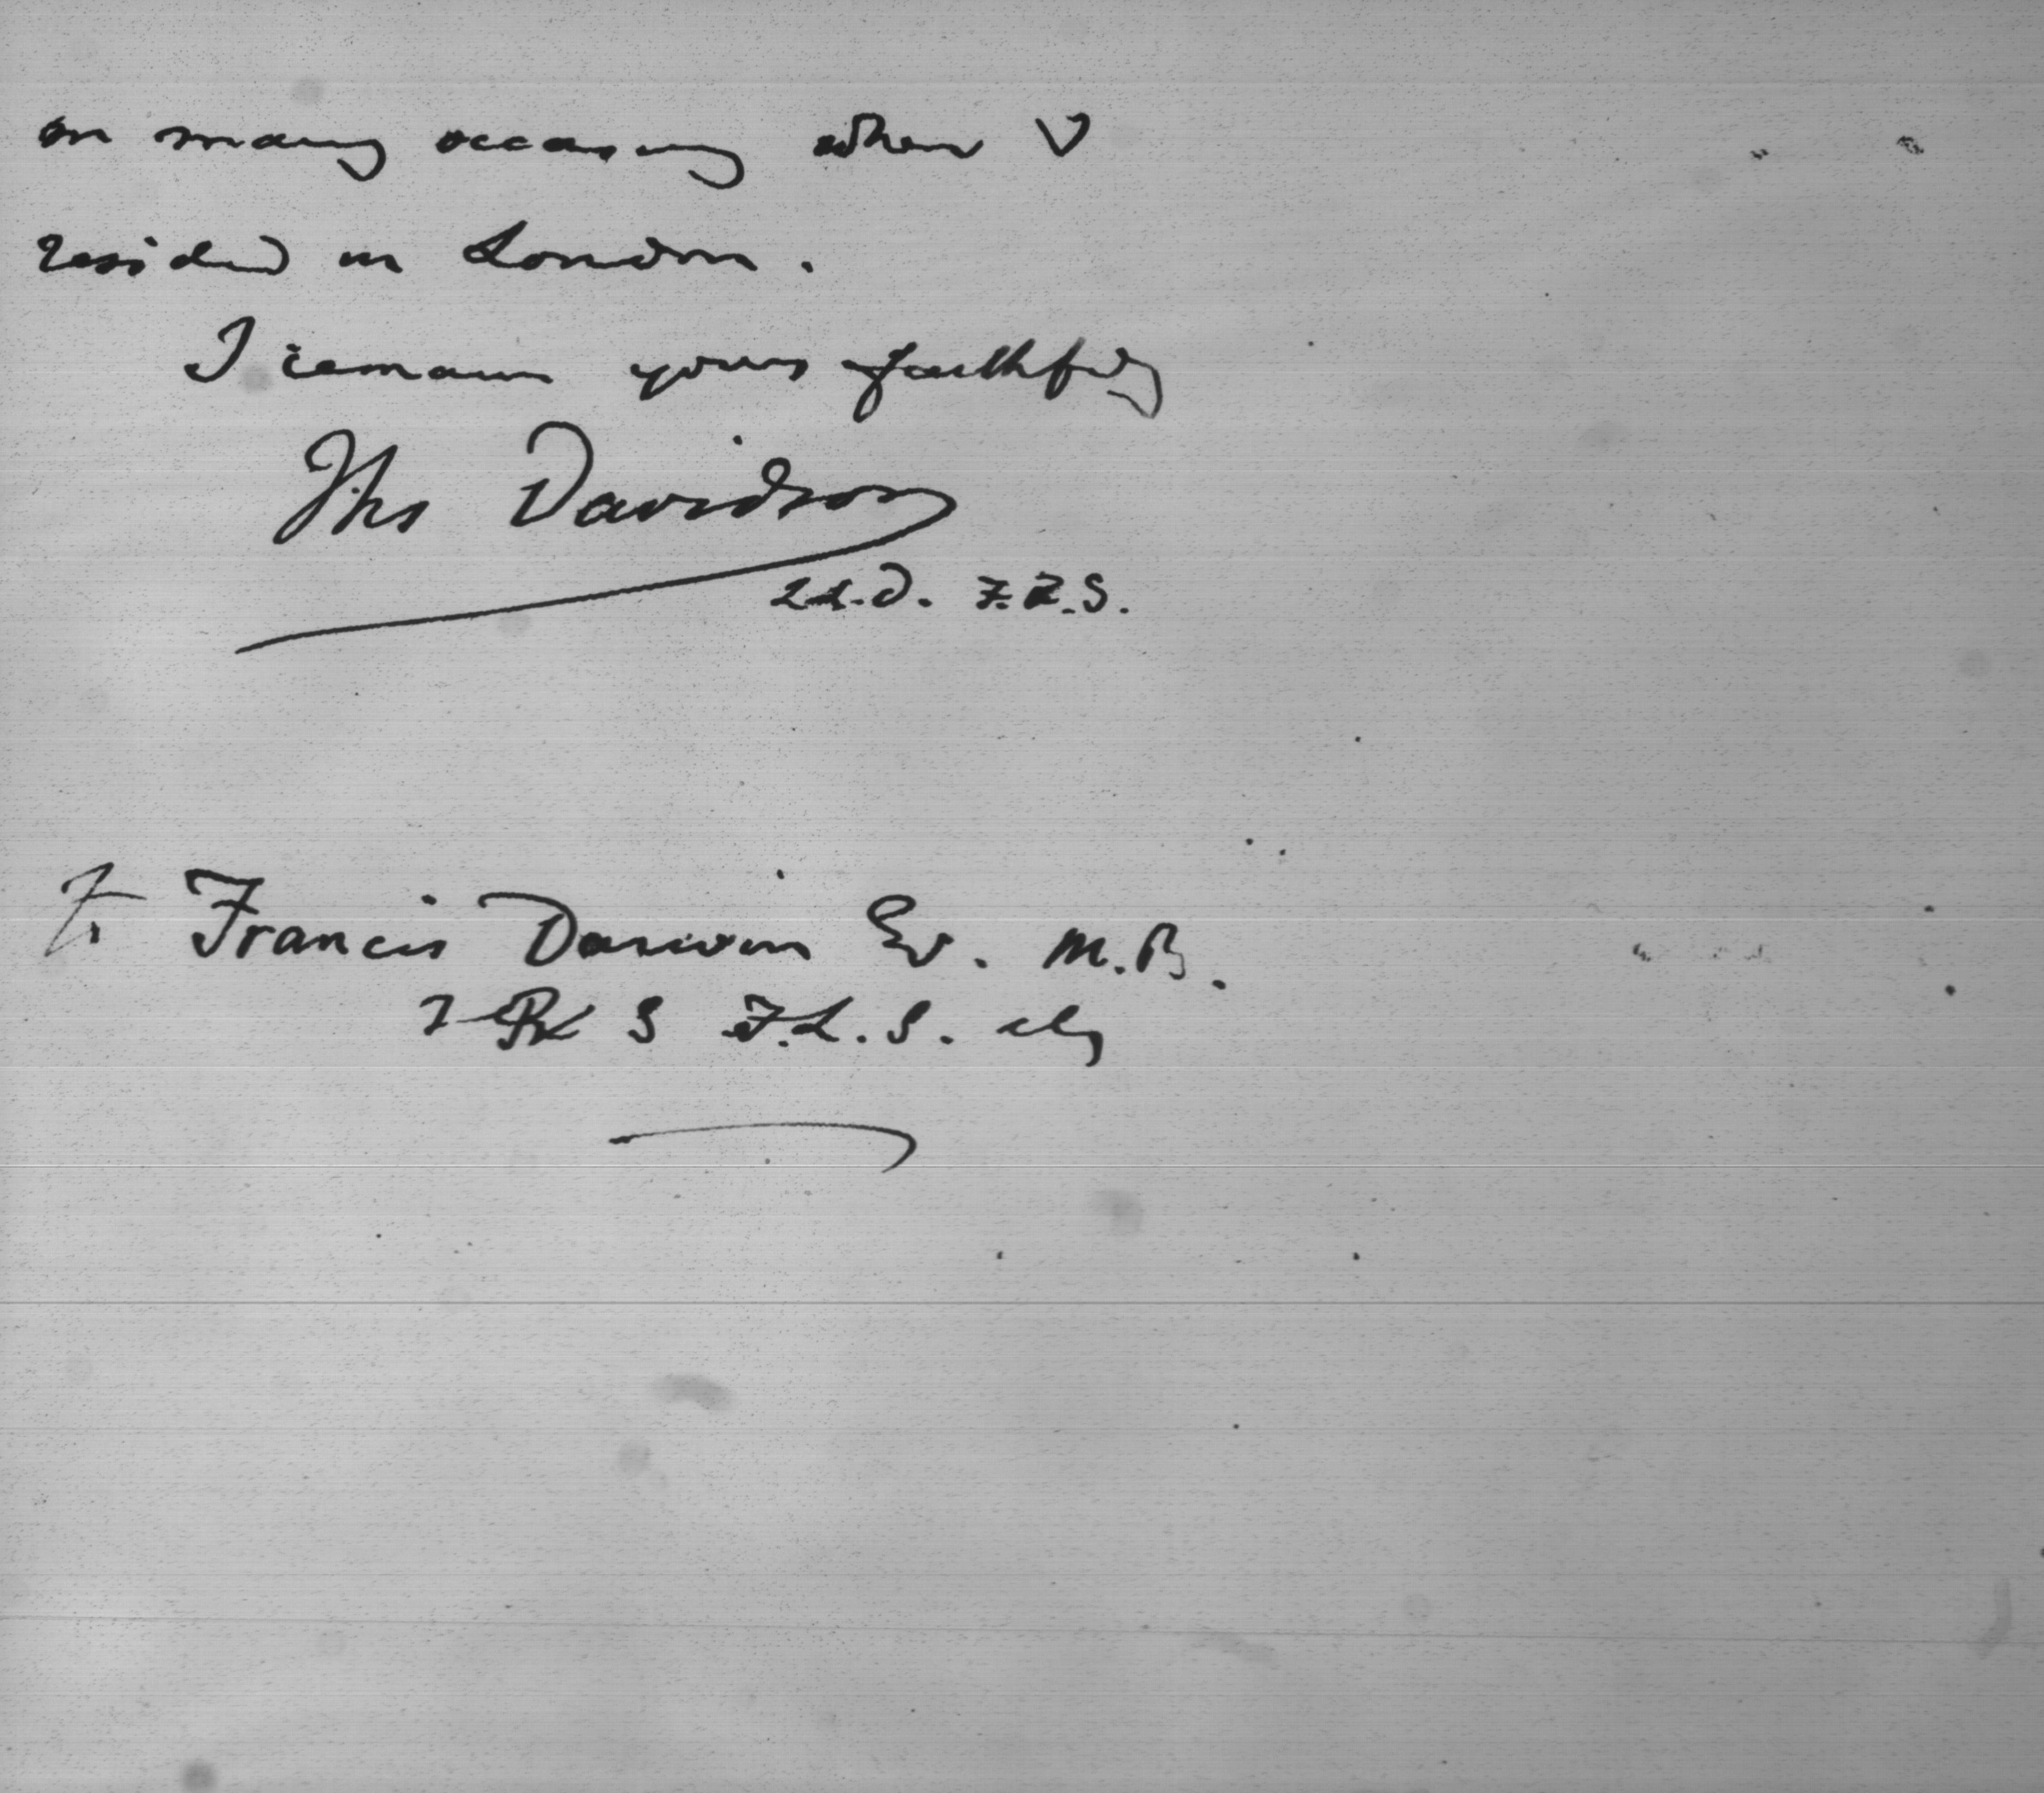 on many occasions when I
resided in London.
I remain yours faithfully
Thos Davidson
LL.D. F.R.S.
To Francis Darwin Esq. M.B.
F.L.S. etc